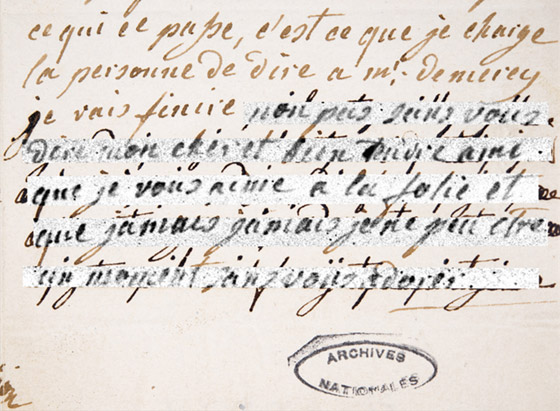 ce qui ce passe, c'est ce que je charge
la personne de dire a mr. demercy
je vais finire non pas sans vous
dire mon cher et bien tendre ami
que je vous aime a la folie et
que jamais jamais je ne peu être
un moment sans vous adorer
ARCHIVES
NATIONALES